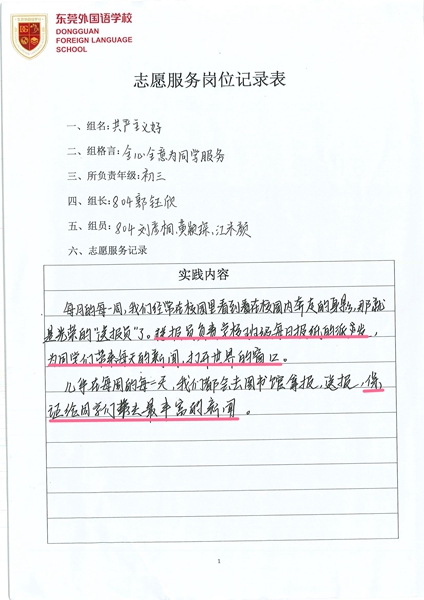 东莞外国语学校
DONGGUAN
FOREIGN LANGUAGE
SCHOOL
志愿服务岗位记录表
一、组名:共产主义好
二、组格言:全心全意为同学服务
三、所负责年级:初三
四、组长:804郭钰
五、组员:804刘彦桐,黄
六、志愿服务记录
实践内容
每月的每一周,我们经常在校园里看到着在校园内奔走的身影,那就
是光荣的“送报员”了。送报员负责学校班级每日报纸的派发,
为同学们带来每天的新闻,打开世界的窗口。
几年在每周的每一天,我们都会去图书馆拿报,送报,保
证给同学们带去最丰富的新闻。
1